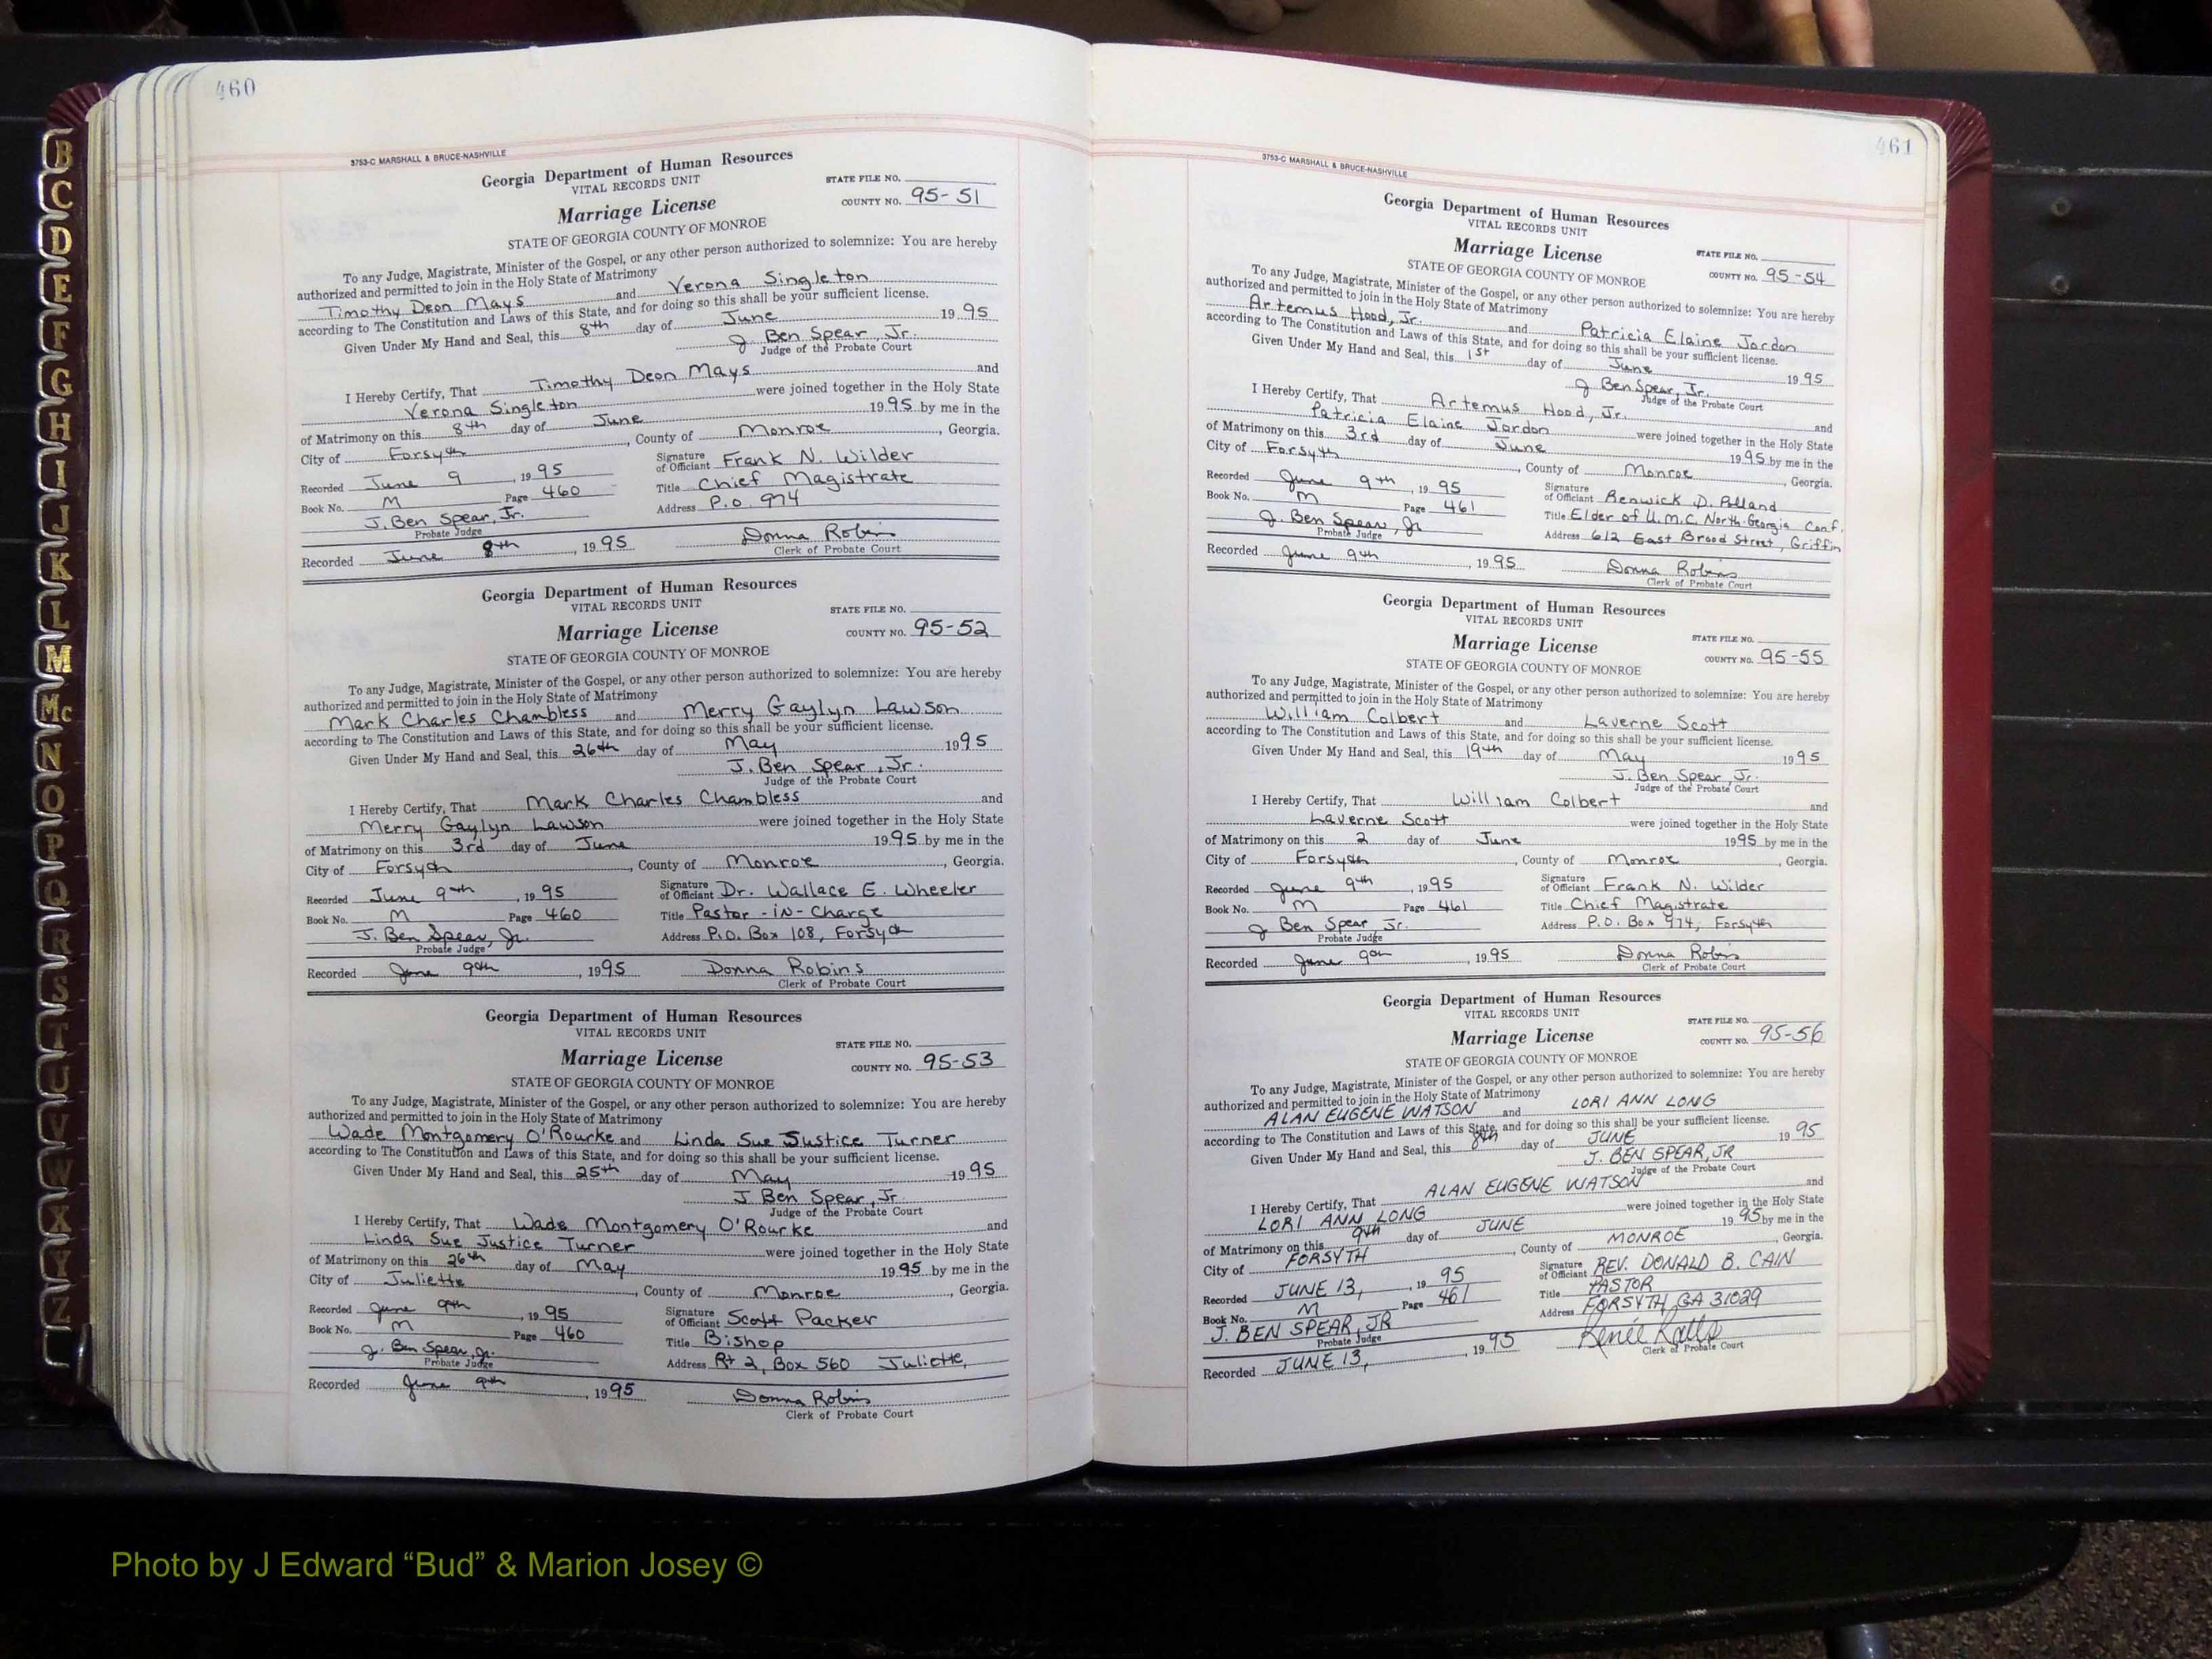 B
C
D
E
F
G
H
I
J
K
L
M
Mc
N
O
P
Q
R
S
T
U
V
W
X
Y
Z
460
3753-C MARSHALL & BRUCE-NASHVILLE
Georgia Department of Human Resources
VITAL RECORDS UNIT
STATE FILE NO.
Marriage License
COUNTY NO. 95-51
STATE OF GEORGIA COUNTY OF MONROE
To any Judge, Magistrate, Minister of the Gospel, or any other person authorized to solemnize: You are hereby
authorized and permitted to join in the Holy State of Matrimony
Timothy Deon Mays and Verona Singleton
according to The Constitution and Laws of this State, and for doing so this shall be your sufficient license.
Given Under My Hand and Seal, this 8th day of June 1995
J. Ben Spear, Jr.
Judge of the Probate Court
I Hereby Certify, That Timothy Deon Mays and
Verona Singleton were joined together in the Holy State
of Matrimony on this 8th day of June 1995 by me in the
City of Forsyth, County of Monroe, Georgia.
Recorded June 9, 1995 Signature of Officiant Frank N. Wilder
Book No. M Page 460 Title Chief Magistrate
J. Ben Spear, Jr. Address P.O. 974
Probate Judge
Recorded June 8th, 1995 Donna Robins
Clerk of Probate Court
Georgia Department of Human Resources
VITAL RECORDS UNIT
STATE FILE NO.
Marriage License
COUNTY NO. 95-52
STATE OF GEORGIA COUNTY OF MONROE
To any Judge, Magistrate, Minister of the Gospel, or any other person authorized to solemnize: You are hereby
authorized and permitted to join in the Holy State of Matrimony
Mark Charles Chambless and Merry Gaylyn Lawson
according to The Constitution and Laws of this State, and for doing so this shall be your sufficient license.
Given Under My Hand and Seal, this 26th day of May 1995
J. Ben Spear, Jr.
Judge of the Probate Court
I Hereby Certify, That Mark Charles Chambless and
Merry Gaylyn Lawson were joined together in the Holy State
of Matrimony on this 3rd day of June 1995 by me in the
City of Forsyth, County of Monroe, Georgia.
Recorded June 9th, 1995 Signature of Officiant Dr. Wallace E. Wheeler
Book No. M Page 460 Title Pastor-in-Charge
J. Ben Spear, Jr. Address P.O. Box 108, Forsyth
Probate Judge
Recorded June 9th, 1995 Donna Robins
Clerk of Probate Court
Georgia Department of Human Resources
VITAL RECORDS UNIT
STATE FILE NO.
Marriage License
COUNTY NO. 95-53
STATE OF GEORGIA COUNTY OF MONROE
To any Judge, Magistrate, Minister of the Gospel, or any other person authorized to solemnize: You are hereby
authorized and permitted to join in the Holy State of Matrimony
Wade Montgomery O'Rourke and Linda Sue Justice Turner
according to The Constitution and Laws of this State, and for doing so this shall be your sufficient license.
Given Under My Hand and Seal, this 25th day of May 1995
J. Ben Spear, Jr.
Judge of the Probate Court
I Hereby Certify, That Wade Montgomery O'Rourke and
Linda Sue Justice Turner were joined together in the Holy State
of Matrimony on this 26th day of May 1995 by me in the
City of Juliette, County of Monroe, Georgia.
Recorded June 9th, 1995 Signature of Officiant Scott Packer
Book No. M Page 460 Title Bishop
J. Ben Spear, Jr. Address Rt 2, Box 560 Juliette,
Probate Judge
Recorded June 9th, 1995 Donna Robins
Clerk of Probate Court
461
3753-C MARSHALL & BRUCE-NASHVILLE
Georgia Department of Human Resources
VITAL RECORDS UNIT
STATE FILE NO.
Marriage License
COUNTY NO. 95-54
STATE OF GEORGIA COUNTY OF MONROE
To any Judge, Magistrate, Minister of the Gospel, or any other person authorized to solemnize: You are hereby
authorized and permitted to join in the Holy State of Matrimony
Artemus Hood, Jr. and Patricia Elaine Jordon
according to The Constitution and Laws of this State, and for doing so this shall be your sufficient license.
Given Under My Hand and Seal, this 1st day of June 1995
J Ben Spear, Jr.
Judge of the Probate Court
I Hereby Certify, That Artemus Hood, Jr. and
Patricia Elaine Jordon were joined together in the Holy State
of Matrimony on this 3rd day of June 1995 by me in the
City of Forsyth, County of Monroe, Georgia.
Recorded June 9th, 1995 Signature of Officiant Renwick D. Polland
Book No. M Page 461 Title Elder of U.M.C. North-Georgia Conf.
J. Ben Spear, Jr Address 612 East Broad Street, Griffin
Probate Judge
Recorded June 9th, 1995 Donna Robins
Clerk of Probate Court
Georgia Department of Human Resources
VITAL RECORDS UNIT
STATE FILE NO.
Marriage License
COUNTY NO. 95-55
STATE OF GEORGIA COUNTY OF MONROE
To any Judge, Magistrate, Minister of the Gospel, or any other person authorized to solemnize: You are hereby
authorized and permitted to join in the Holy State of Matrimony
William Colbert and Laverne Scott
according to The Constitution and Laws of this State, and for doing so this shall be your sufficient license.
Given Under My Hand and Seal, this 19th day of May 1995
J. Ben Spear, Jr.
Judge of the Probate Court
I Hereby Certify, That William Colbert and
Laverne Scott were joined together in the Holy State
of Matrimony on this 2 day of June 1995 by me in the
City of Forsyth, County of Monroe, Georgia.
Recorded June 9th, 1995 Signature of Officiant Frank N. Wilder
Book No. M Page 461 Title Chief Magistrate
J Ben Spear Jr. Address P.O. Box 974, Forsyth
Probate Judge
Recorded June 9th, 1995 Donna Robins
Clerk of Probate Court
Georgia Department of Human Resources
VITAL RECORDS UNIT
STATE FILE NO.
Marriage License
COUNTY NO. 95-56
STATE OF GEORGIA COUNTY OF MONROE
To any Judge, Magistrate, Minister of the Gospel, or any other person authorized to solemnize: You are hereby
authorized and permitted to join in the Holy State of Matrimony
ALAN EUGENE WATSON and LORI ANN LONG
according to The Constitution and Laws of this State, and for doing so this shall be your sufficient license.
Given Under My Hand and Seal, this 8th day of JUNE 1995
J. BEN SPEAR, JR
Judge of the Probate Court
I Hereby Certify, That ALAN EUGENE WATSON and
LORI ANN LONG were joined together in the Holy State
of Matrimony on this 9th day of JUNE 1995 by me in the
City of FORSYTH, County of MONROE, Georgia.
Recorded JUNE 13, 1995 Signature of Officiant REV. DONALD B. CAIN
Book No. M Page 461 Title PASTOR
J. BEN SPEAR, JR Address FORSYTH, GA 31029
Probate Judge
Recorded JUNE 13, 1995 Renée
Clerk of Probate Court
Photo by J Edward “Bud” & Marion Josey ©